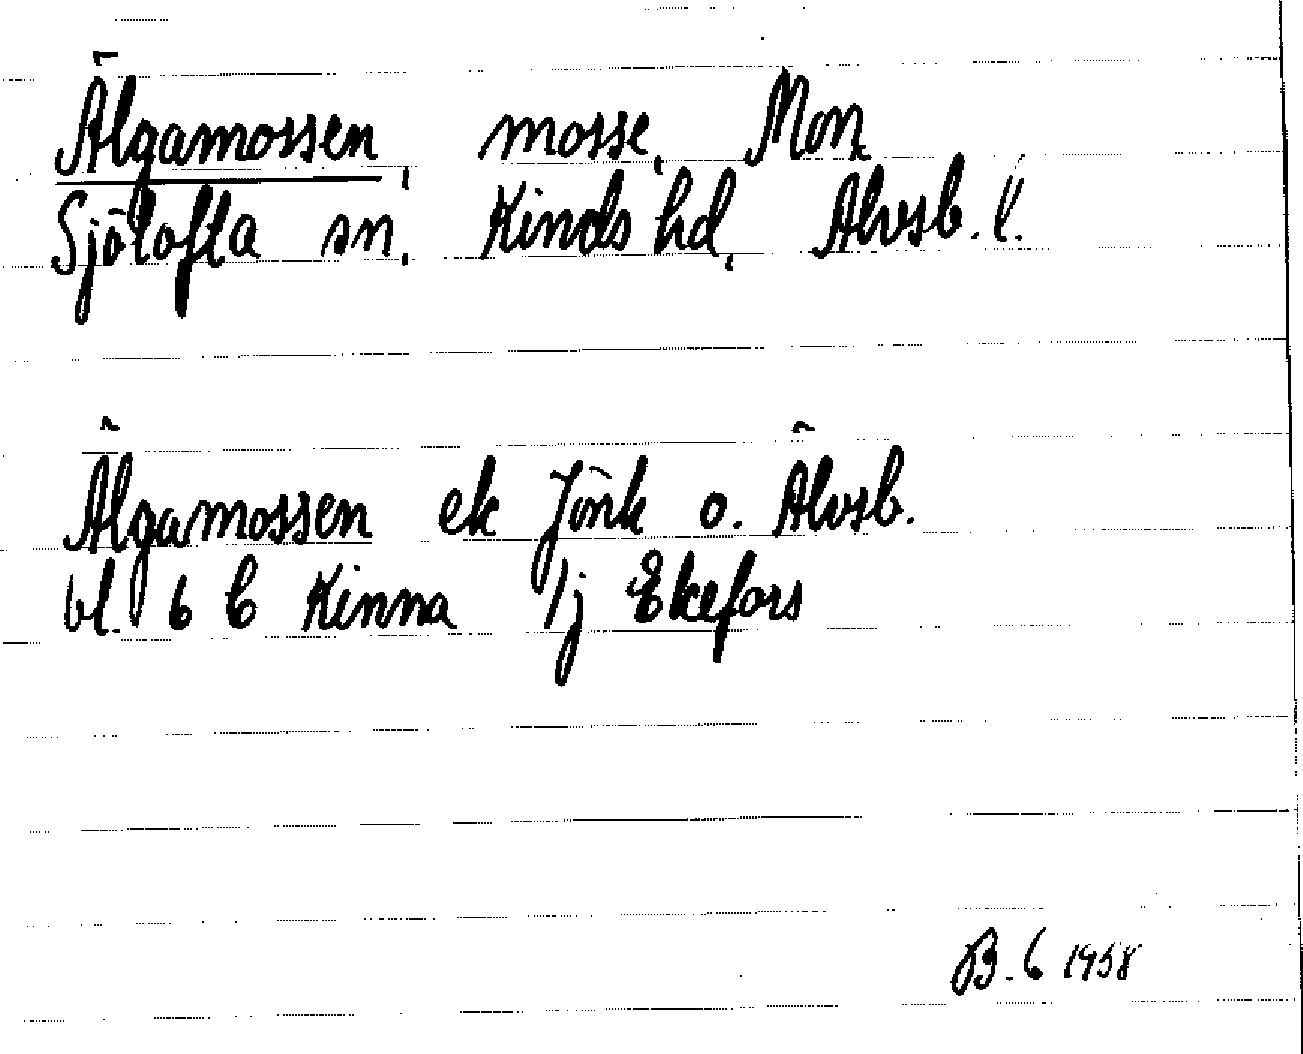 Älgamossen, mosse, Mon
Sjötofta sn, Kinds hd, Älvsb. l.
Älgamossen ek Jönk o. Älvsb.
bl. 6 C Kinna 1j Ekefors
B. C 1958